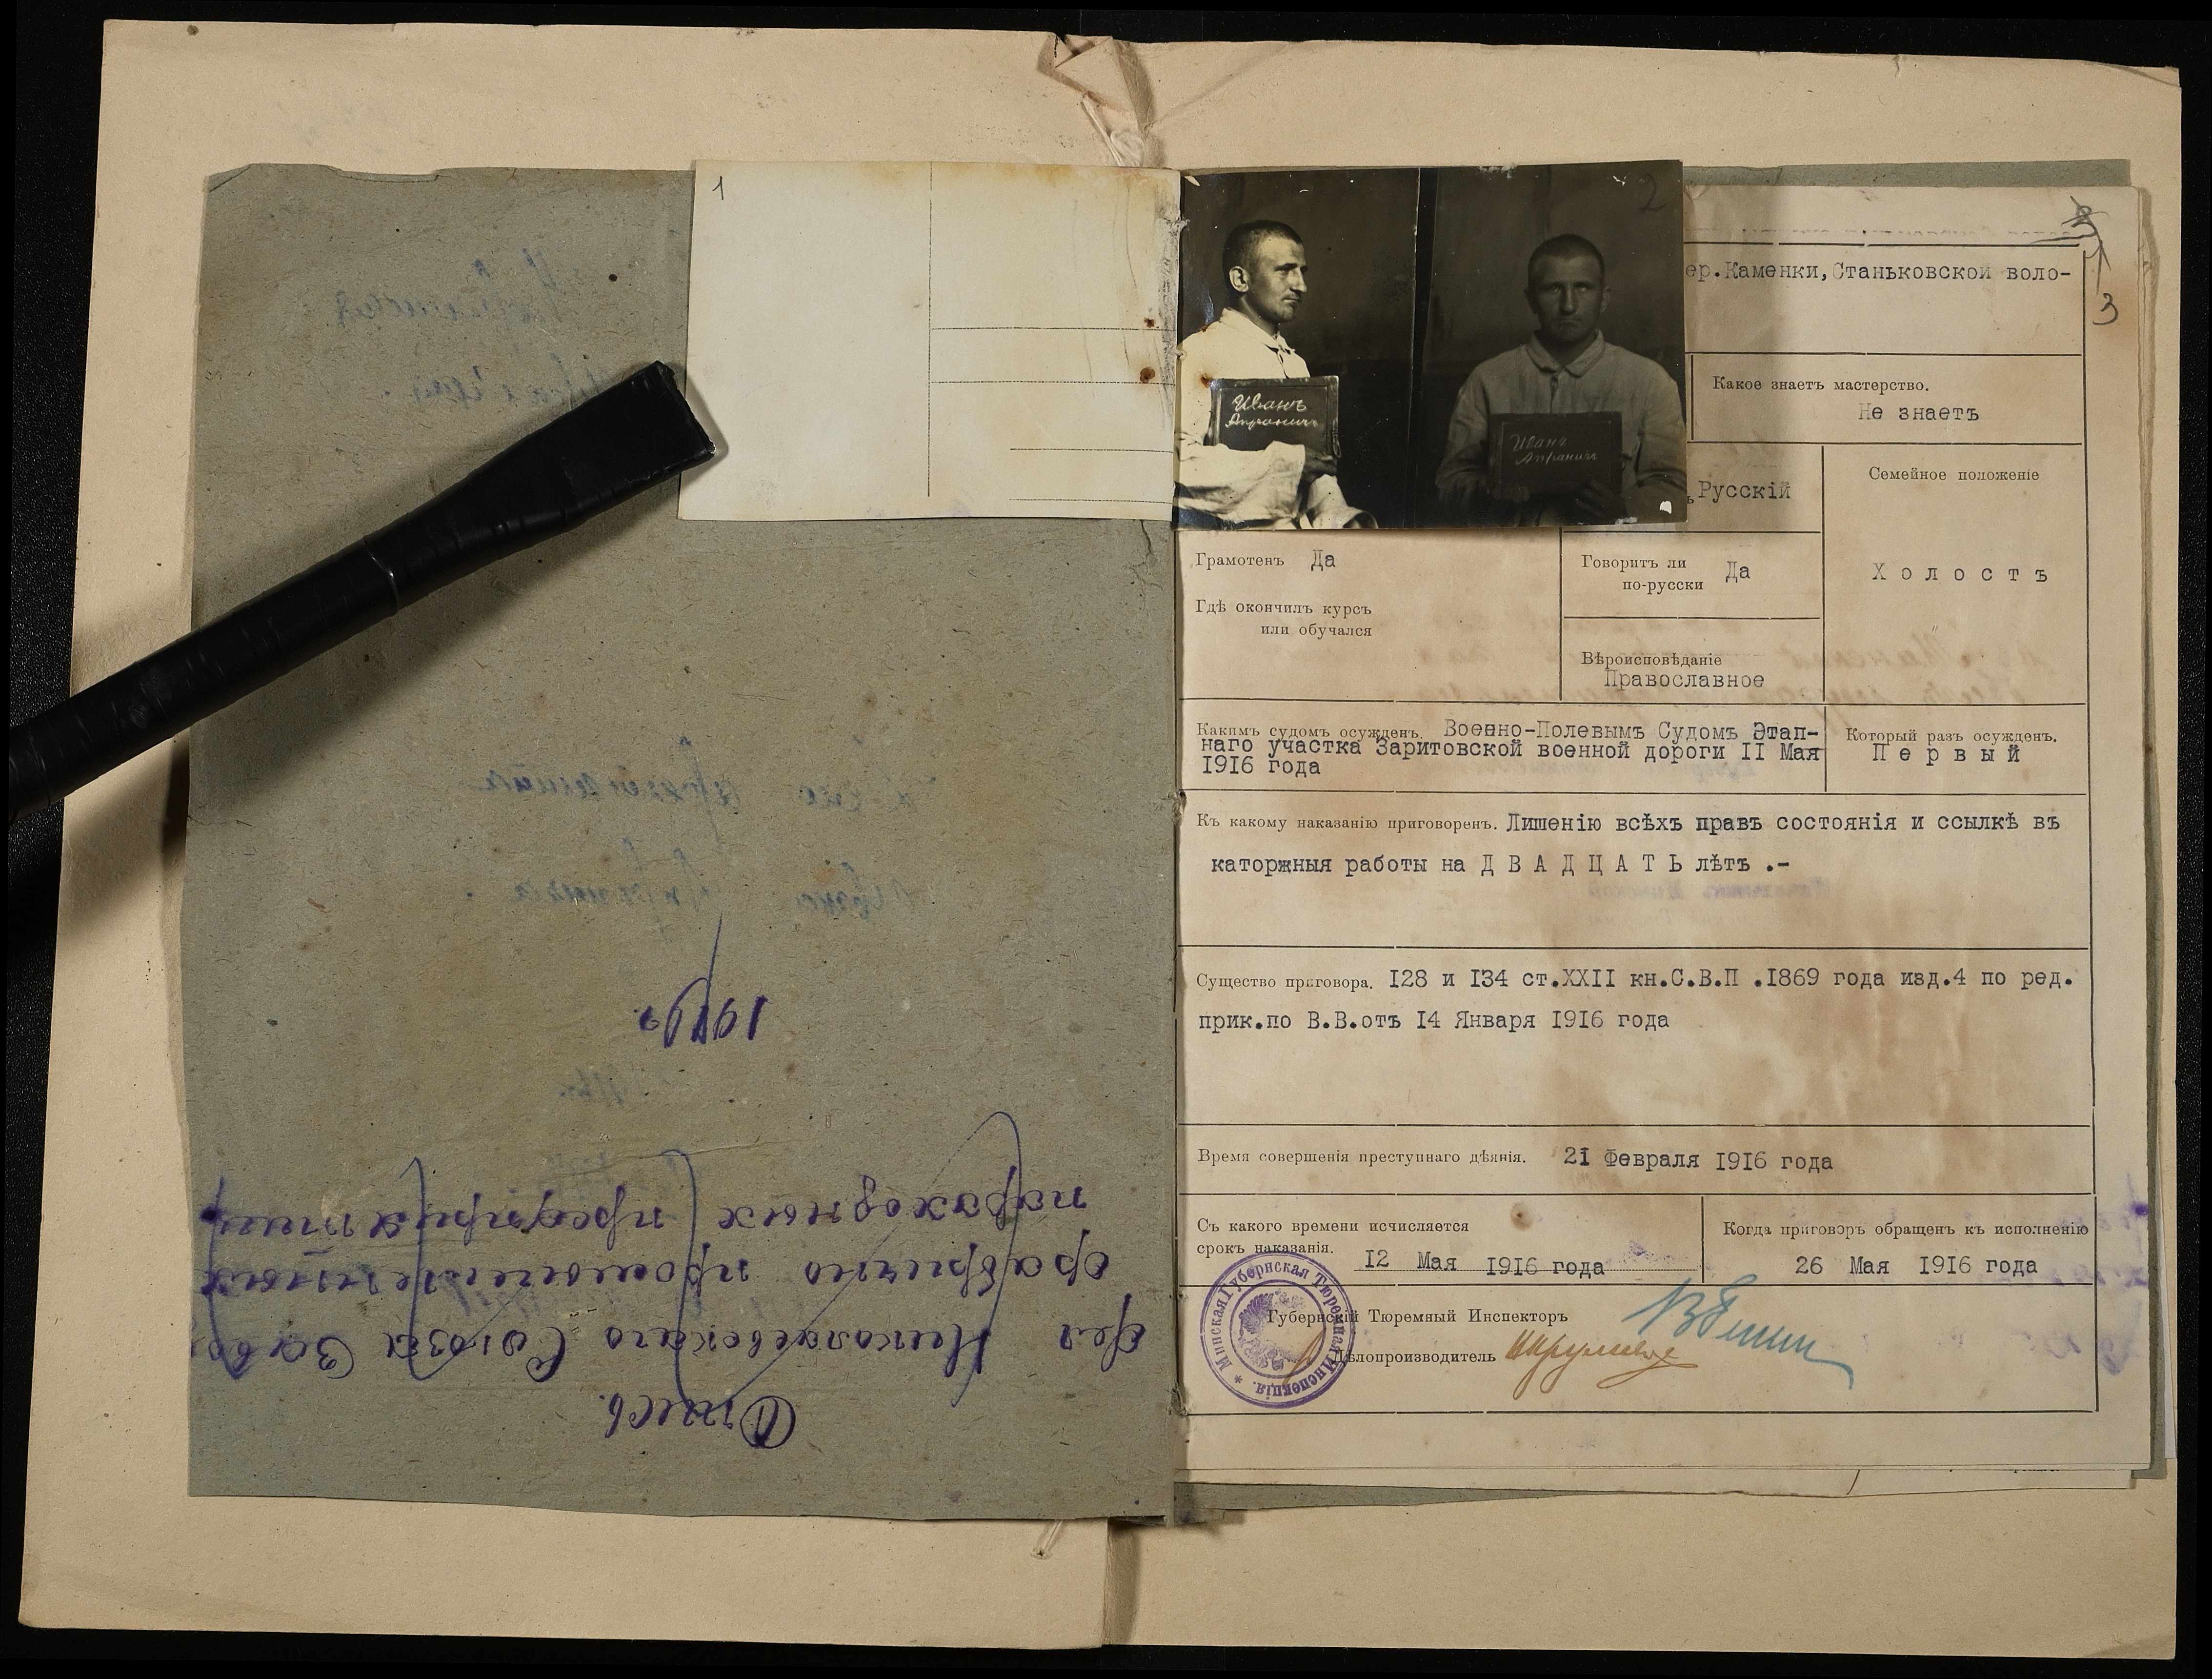 1
2
Иванъ
Апраничъ
Иванъ
Апраничъ
3
ер.Каменки, Станьковской воло-
Какое знаетъ мастерство.
Не знаетъ
Русскій
Семейное положеніе
Холостъ
Грамотенъ Да
Говоритъ ли
по-русски Да
Гдѣ окончилъ курсъ
или обучался
Вѣроисповѣданіе
Православное
Какимъ судомъ осужденъ. Военно-Полевымъ Судомъ Этап-
наго участка Заритовской военной дороги II Мая
1916 года
Который разъ осужденъ.
Первый
Къ какому наказанію приговоренъ. Лишенію всѣхъ правъ состоянія и ссылкѣ въ
каторжныя работы на ДВАДЦАТЬ лѣтъ .-
Существо приговора. 128 и 134 ст.XXII кн.С.В.П .1869 года изд.4 по ред.
прик.по В.В.отъ 14 Января 1916 года
Время совершенія преступнаго дѣянія. 21 Февраля 1916 года
Съ какого времени исчисляется
срокъ наказанія. 12 Мая 1916 года
Когда приговоръ обращенъ къ исполненію
26 Мая 1916 года
Губернскій Тюремный Инспекторъ
Дѣлопроизводитель
* Минская Губернская Тюремная Инспекція.
Опись.
дел Николаевскаго Союза Заво
фабрично промышленных
пароходных предприятии